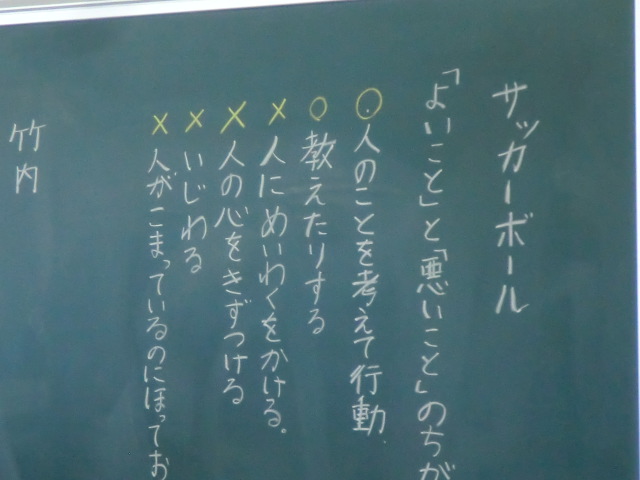 サッカーボール
「よいこと」と「悪いこと」のちが
◯人のことを考えて行動.
○教えたりする
×人にめいわくをかける。
×人の心をきずつける
×いじわる
×人がこまっているのにほってお
竹内